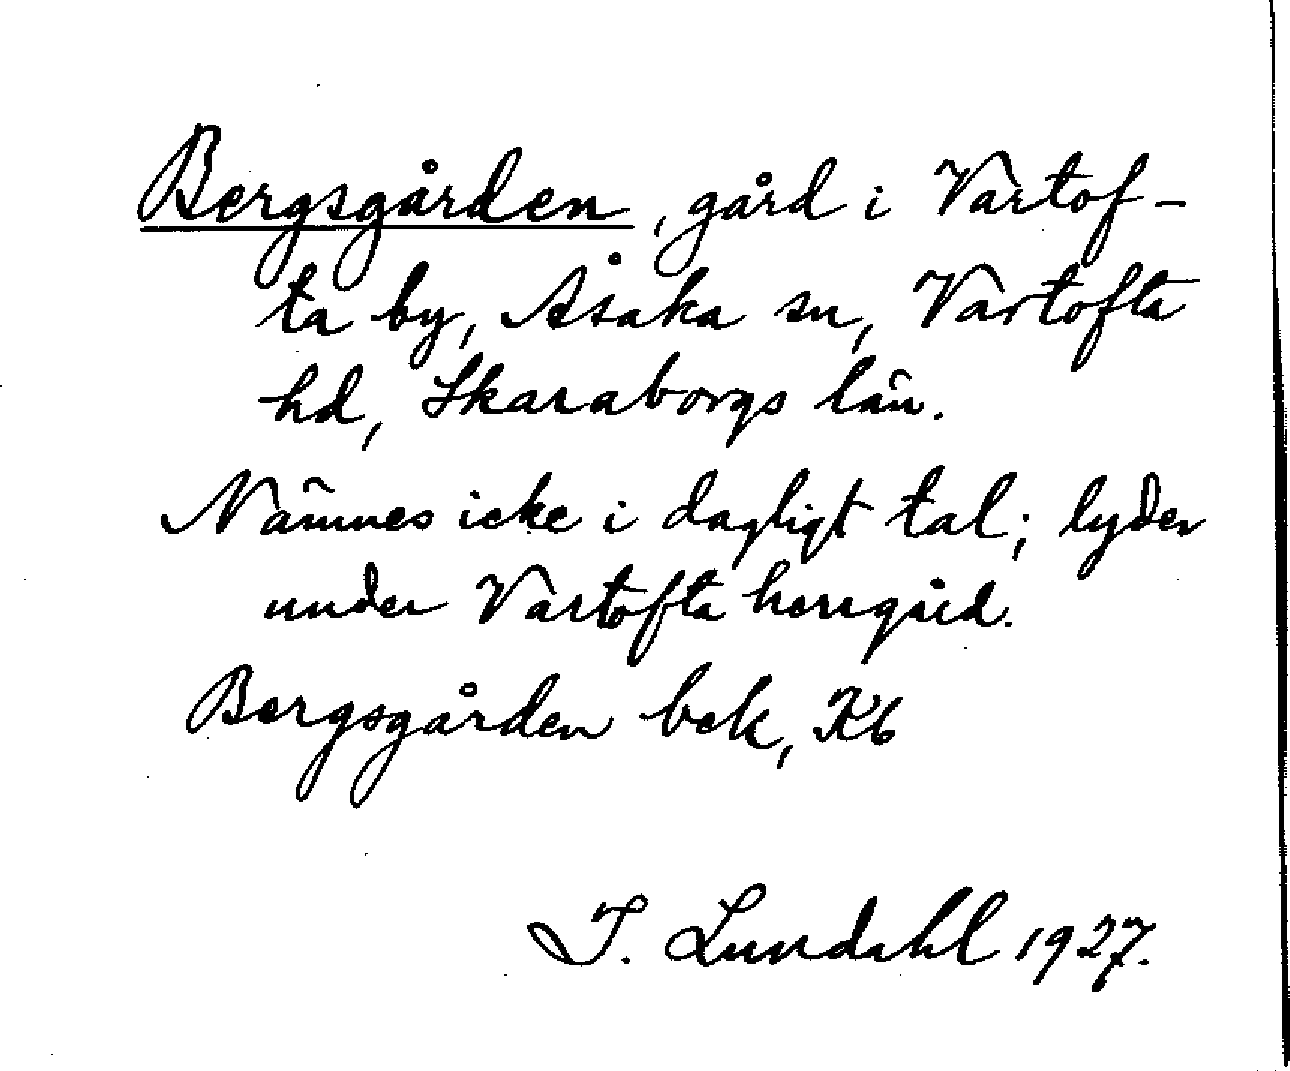 Bergsgården, gård i Vartof-
ta by, Åsaka sn, Vartofta
hd, Skaraborgs län.
Nämnes icke i dagligt tal; lyder
under Vartofta herrgård.
Bergsgården bek, Kb
I. Lundahl 1927.